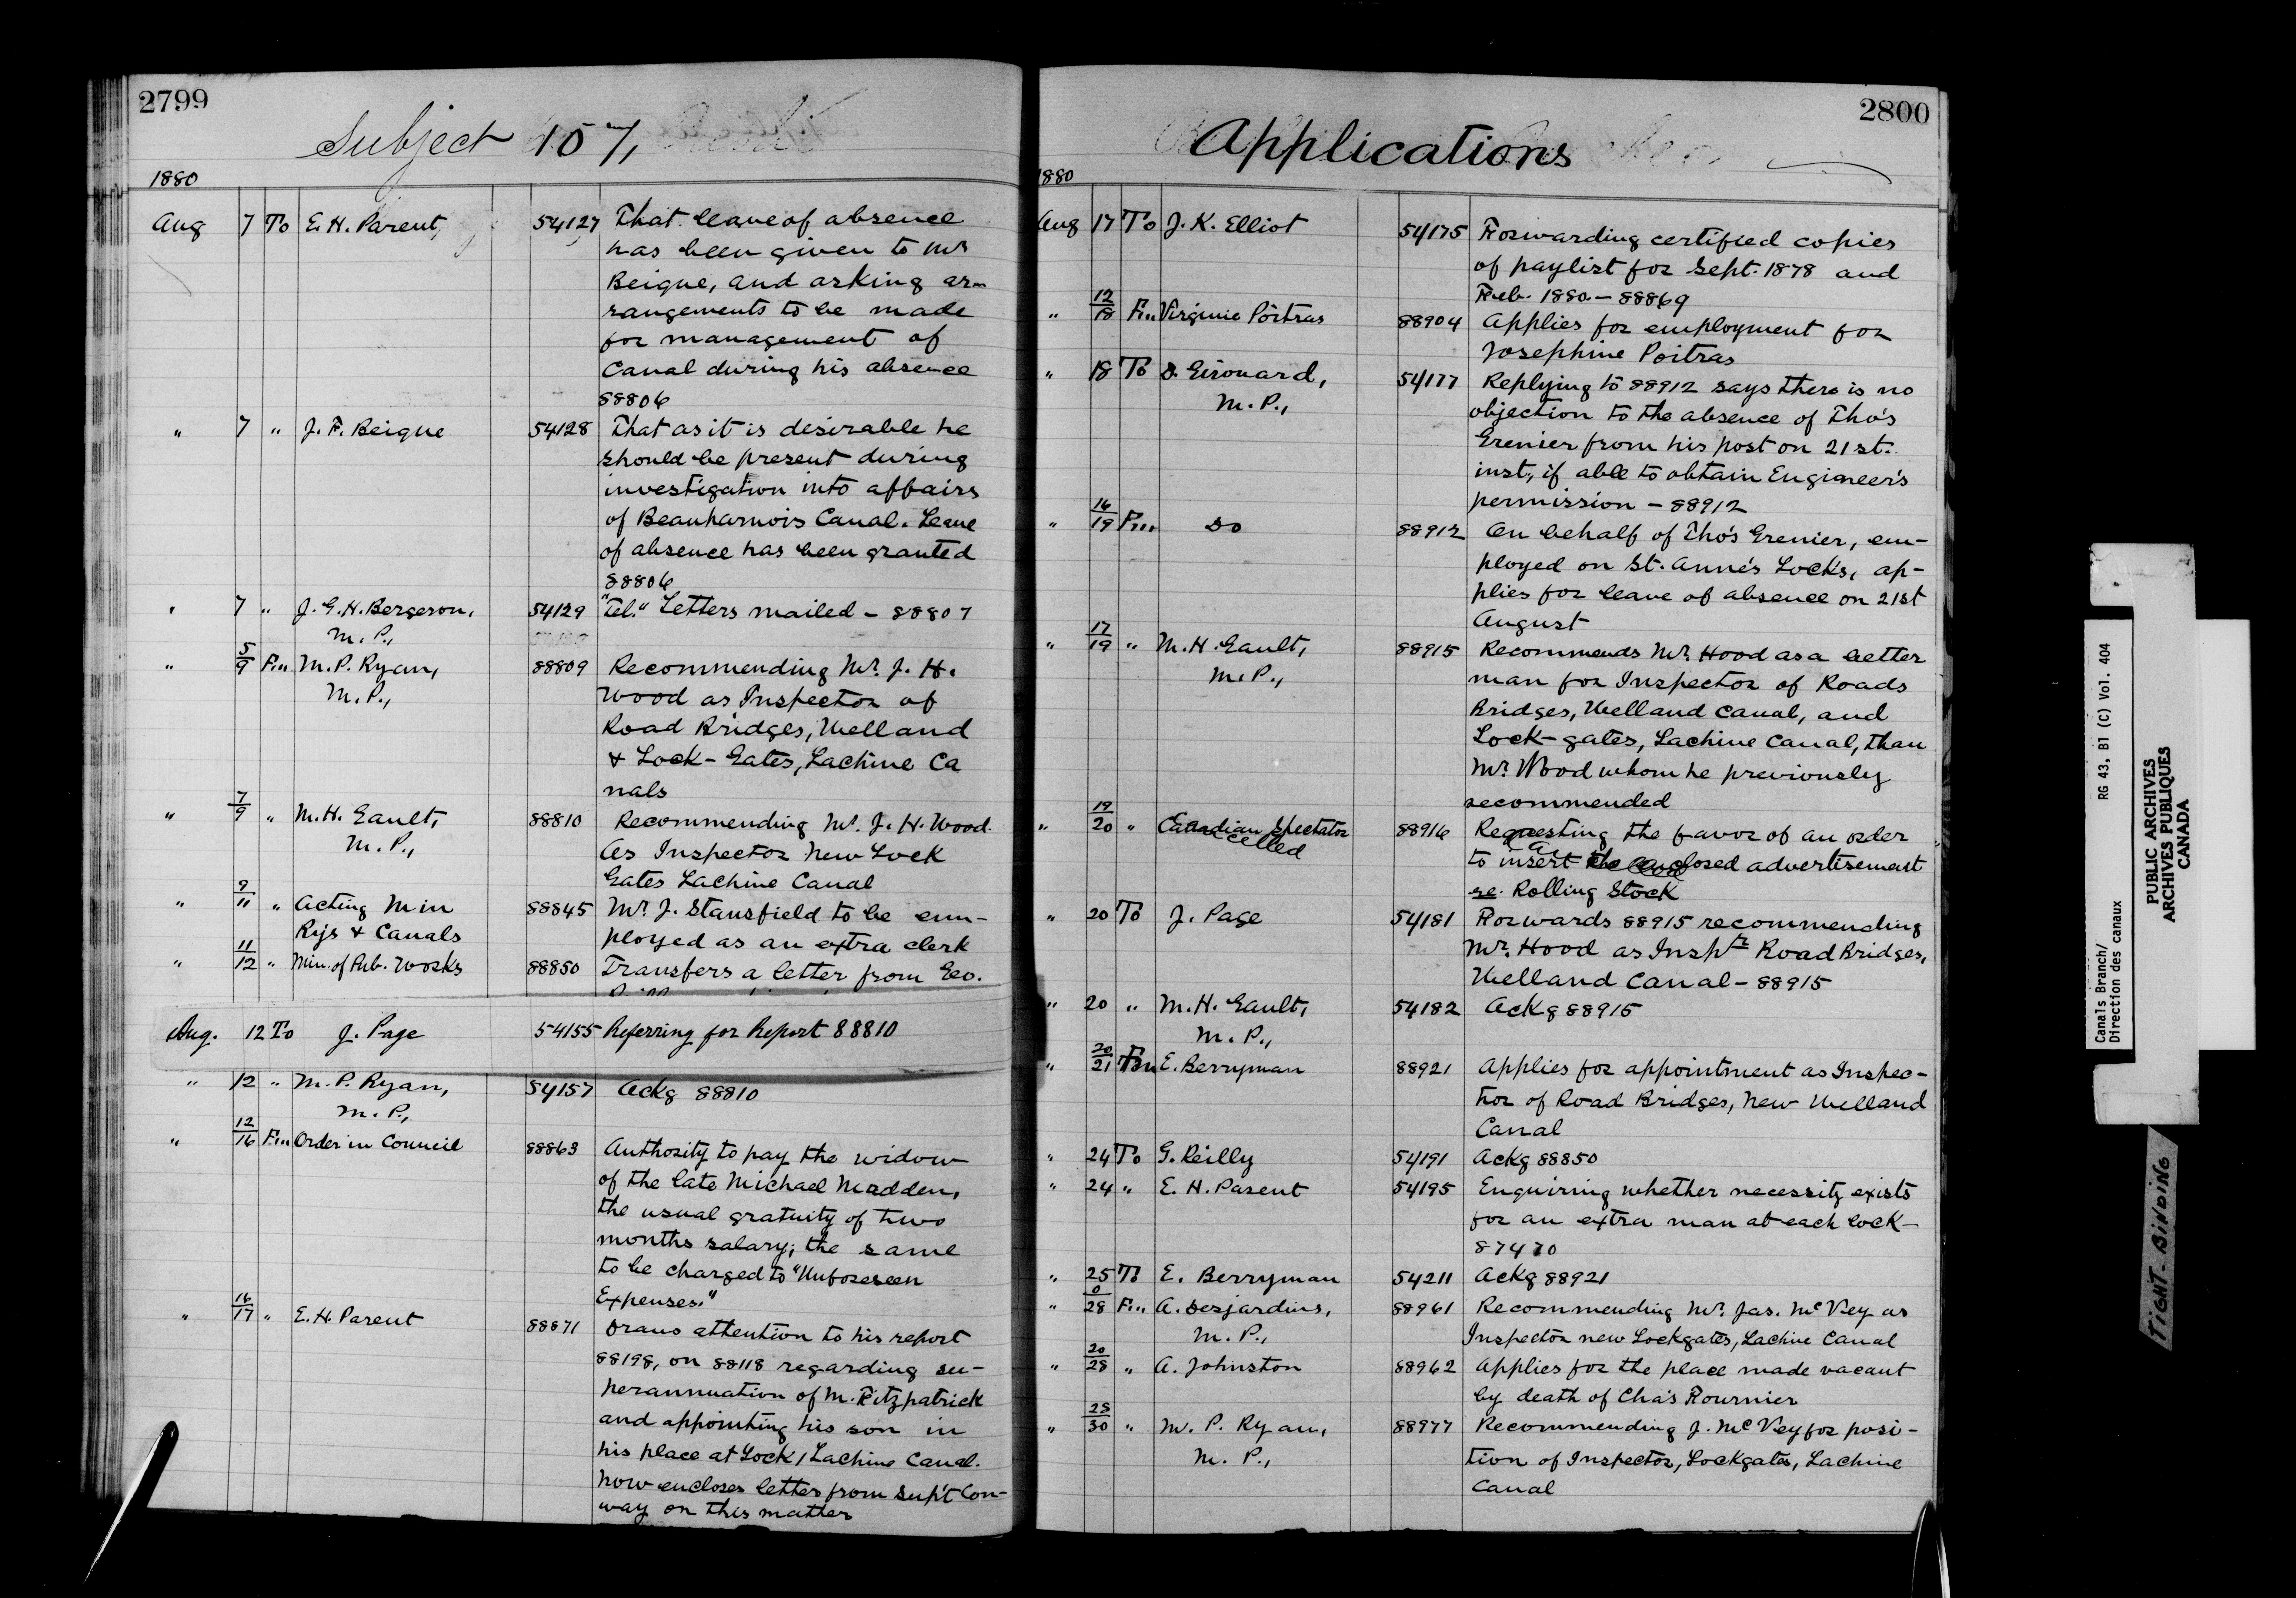 2799
Subject 107,
1880
Aug 7 To E. H. Parent, 54127 That leave of absence
has been given to Mr
Beique, and asking ar-
rangements to be made
for management of
Canal during his absence
88806
" 7 " J. F. Beique 54128 That as it is desirable he
should be present during
investigation into affairs
of Beauharnois Canal. Leave
of absence has been granted
88806
" 7 " J. G. H. Bergeron, 54129 "Tel." Letters mailed - 88807
M. P.,
" 5/9 Fm M. P. Ryan, 88809 Recommending Mr. J. H.
M. P., Wood as Inspector of
Road Bridges, Welland
& Lock-Gates, Lachine Ca
nals
" 7/9 " M. H. Gault, 88810 Recommending Mr. J. H. Wood
M. P., As Inspector New Lock
Gates Lachine Canal
" 9/11 " Acting Min 88845 Mr. J. Stansfield to be em-
Rys & Canals ployed as an extra clerk
" 11/12 " Min. of Pub. Works 88850 Transfers a letter from Geo.
Aug. 12 To J. Page 54155 Referring for Report 88810
" 12 " M. P. Ryan, 54157 Ackg 88810
M. P.,
" 12/16 Fm Order in Council 88863 Authority to pay the widow
of the late Michael Madden,
the usual gratuity of two
months salary; the same
to be charged to "Unforeseen
Expenses."
" 16/17 " E. H. Parent 88871 Draws attention to his report
88198, on 88118 regarding su-
perannuation of M. Fitzpatrick
and appointing his son in
his place at Lock 1 Lachine Canal.
Now encloses letter from Sup't Con-
way on this matter
2800
Applications
1880
Aug 17 To J. K. Elliot 54175 Forwarding certified copies
of paylist for Sept. 1878 and
Feb. 1880 - 88869
" 12/18 Fm Virginie Poitras 88904 Applies for employment for
Josephine Poitras
" 18 To D. Girouard, 54177 Replying to 88912 says there is no
M. P., objection to the absence of Tho's
Grenier from his post on 21st.
inst., if able to obtain Engineer's
permission - 88912
" 16/19 Fm Do 88912 On behalf of Tho's Grenier, em-
ployed on St. Anne's Locks, ap-
plies for leave of absence on 21st
August
" 17/19 " M. H. Gault, 88915 Recommends Mr. Hood as a better
M. P., man for Inspector of Roads
Bridges, Welland Canal, and
Lock-gates, Lachine Canal, than
Mr. Wood whom he previously
recommended
" 19/20 " Canadian Spectator 88916 Requesting the favor of an order
celled to insert the enclosed advertisement
re. Rolling Stock
" 20 To J. Page 54181 Forwards 88915 recommending
Mr. Hood as Inspr. Road Bridges,
Welland Canal - 88915
" 20 " M. H. Gault, 54182 Ackg 88915
M. P.,
" 20/21 Fm E. Berryman 88921 Applies for appointment as Inspec-
tor of Road Bridges, New Welland
Canal
" 24 To G. Reilly 54191 Ackg 88850
" 24 " E. H. Parent 54195 Enquiring whether necessity exists
for an extra man at each lock -
87470
" 25 To E. Berryman 54211 Ackg 88921
" 0/28 Fm A. Desjardins, 88961 Recommending Mr. Jas. McVey as
M. P., Inspector new Lockgates, Lachine Canal
" 20/28 " A. Johnston 88962 Applies for the place made vacant
by death of Cha's Fournier
" 28/30 " M. P. Ryan, 88977 Recommending J. McVey for posi-
M. P., tion of Inspector, Lockgates, Lachine
Canal
Canals Branch/
Direction des canaux
RG 43, B1 (C) Vol. 404
PUBLIC ARCHIVES
ARCHIVES PUBLIQUES
CANADA
TIGHT-BINDING